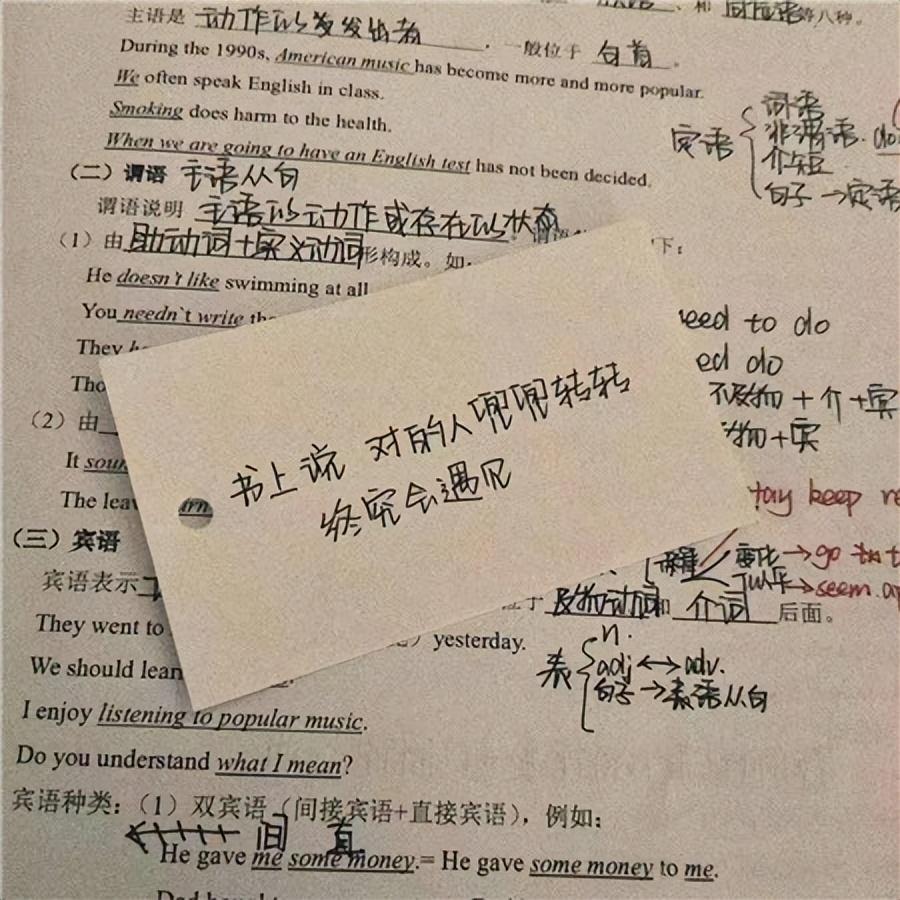 主语是 动作的发出者 ，一般位于 句首 。
During the 1990s, American music has become more and more popular.
We often speak English in class.
Smoking does harm to the health.
When we are going to have an English test has not been decided.
定语
词语
非谓语. do
介短
句子 → 定语
(二) 谓语 主语从句
谓语说明 主语的动作或存在的状态。谓语
(1) 由助动词+实义动词形构成。如: 下:
He doesn't like swimming at all
You needn`t write the
They
Tho
need to do
ed do
不及物 + 介 + 宾
物 + 宾
(2) 由
It soun
The leav
书上说 对的人兜兜转转
终究会遇见
tay keep re
变化 → go
→ seem. ap
(三) 宾语
宾语表示 位于 及物动词和 介词 后面。
They went to yesterday.
We should lear
表
n.
adj ↔ adv.
句子 → 表语从句
I enjoy listening to popular music.
Do you understand what I mean?
宾语种类:(1) 双宾语 (间接宾语+直接宾语), 例如:
间 直
He gave me some money.= He gave some money to me.